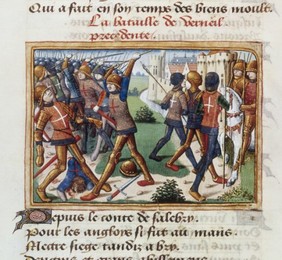 Qui a fait en son temps des biens moult
La Bataille de Verneil
precedente.
Depuis le conte de salebry.
Pour les angloys si fut au mans.
Mectre siege tandiz a bry.